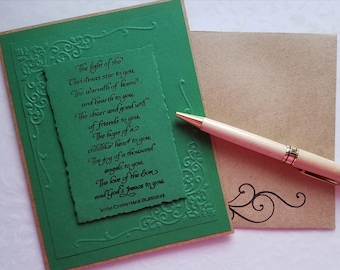 The light of the
Christmas star to you,
The warmth of home
and hearth to you,
The cheer and good will
of friends to you,
The hope of a
childlike heart to you,
The joy of a thousand
angels to you,
The love of the Son
and God's peace to you.
Irish Christmas Blessing